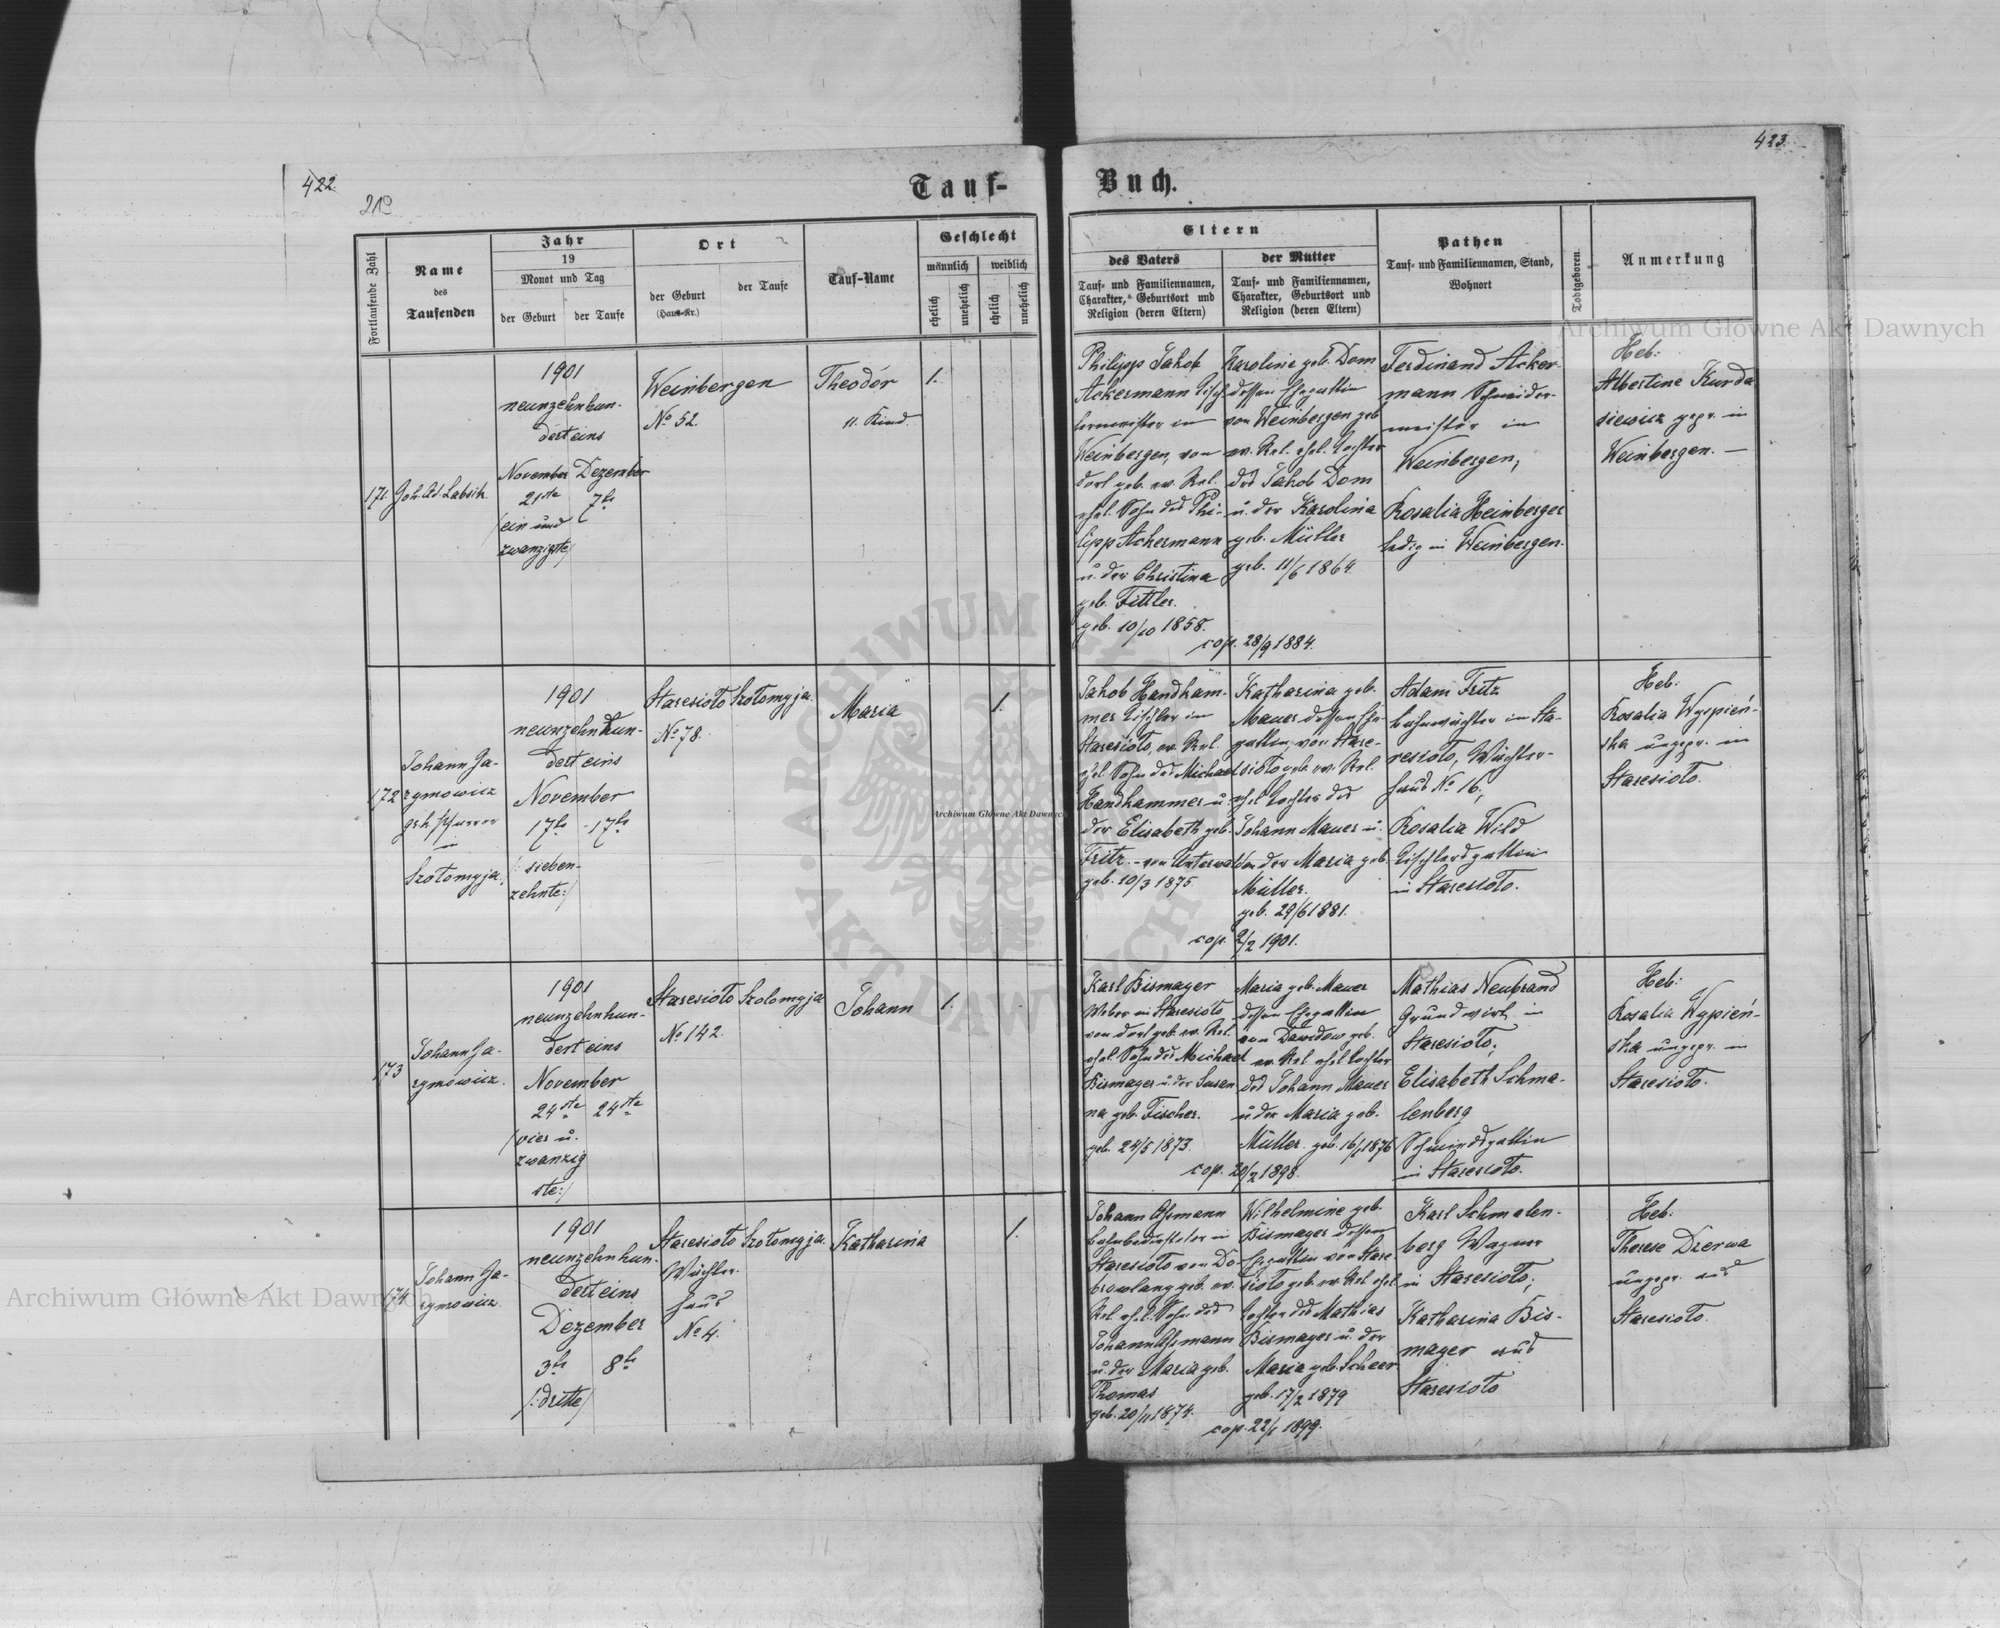 422.
423.
Tauf-
Buch.
Fortlaufende Zahl
Name
des
Taufenden
Jahr
19
Monat und Tag
der Geburt
der Taufe
Ort
der Geburt
(Haus-Nr.)
der Taufe
Tauf-Name
Geschlecht
männlich
weiblich
ehelich
unehelich
ehelich
unehelich
Eltern
des Vaters
Tauf- und Familiennamen,
Charakter, Geburtsort und
Religion (deren Eltern)
der Mutter
Tauf- und Familiennamen,
Charakter, Geburtsort und
Religion (deren Eltern)
Pathen
Tauf- und Familiennamen, Stand,
Wohnort
Todtgeboren.
Anmerkung
171. Joh. Ad. Labsik
1901
neunzehnhun-
dert eins
November Dezember
21ste 7te
(ein und
zwanzigste)
Weinbergen
No 52.
Theodor
11. Kind.
1.
Philipp Jakob
Ackermann Tisch-
lermeister in
Weinbergen, von
dort geb. ev. Rel.
ehel. Sohn des Phi-
lipp Ackermann
u. der Christina
geb.
geb. 10/10 1858.
Karoline geb. Dom
dessen Ehegattin
von Weinbergen geb
ev. Rel. ehel. Tochter
des Jakob Dom
u. der Karolina
geb. Müller
geb. 11/6 1864.
cop. 28/9 1884.
Ferdinand Acker-
mann Schneider-
meister in
Weinbergen;
Rosalia Heinberger
ledig in Weinbergen.
Heb:
Albertine Kurda
siewicz gepr. in
Weinbergen. —
172
Johann Ja-
rymowicz
gr. k. Pfarrer
in
Szołomyja.
1901
neunzehnhun-
dert eins
November
17te - 17te
(: sieben-
zehnte :)
Staresioło Szołomyja.
No 78.
Maria
1.
Jakob Handham-
mer Tischler in
Staresioło, ev. Rel.
ehel. Sohn des Michael
Handhammer u.
der Elisabeth geb.
Fritz - von Unterwalden
geb. 10/3 1875.
Katharina geb.
Mauer dessen Ehe-
gattin, von Stare-
sioło geb. ev. Rel.
ehel. Tochter des
Johann Mauer u.
der Maria geb.
Müller.
geb. 29/6 1881.
cop. 2/2 1901.
Adam Fritz
Bahnwächter in Sta-
resioło, Wächter-
haus No 16;
Rosalia Wild
Tischlersgattin
in Staresioło.
Heb:
Rosalia Wyspień-
ska ungepr. in
Staresioło.
173
Johann Ja-
rymowicz.
1901
neunzehnhun-
dert eins
November
24ste 24ste
(vier u.
zwanzig
ste:)
Staresioło Szołomyja
No 142.
Johann
1.
Karl Bismayer
Weber in Staresioło
von dort geb. ev. Rel.
ehel. Sohn des Michael
Bismayer u. der Susan-
na geb. Fischer.
geb. 24/5 1873.
Maria geb. Mauer
dessen Ehegattin
von Dawidow geb.
ev. Rel. ehel. Tochter
des Johann Mauer
u. der Maria geb.
Müller. geb. 16/1 1876
cop. 20/2 1898.
Mathias Neubrand
Grundwirt in
Staresioło;
Elisabeth Schma-
lenberg
Schmiedsgattin
in Staresioło.
Heb:
Rosalia Wypień-
ska ungepr. in
Staresioło.
174
Johann Ja-
rymowicz.
1901
neunzehnhun-
dert eins
Dezember
3te 8te
(: dritte)
Staresioło Szołomyja.
Wächter-
haus
No 4.
Katharina
1.
Johann
Bahnbediensteter in
Staresioło von Do-
geb. ev.
Rel. ehel. Sohn des
Johann
u. der Maria geb.
Thomas
geb. 20/11 1874.
Wilhelmine geb.
Bismayer dessen
Ehegattin von Stare
sioło geb. ev. Rel. ehel
Tochter des Mathias
Bismayer u. der
Maria geb. Scheer
geb. 17/2 1879
cop. 22/1 1899.
Karl Schmalen-
berg Wagner
in Staresioło;
Katharina Bis-
mayer aus
Staresioło
Heb.
Therese Dzerwa
ungepr. aus
Staresioło.
Archiwum Główne Akt Dawnych
Archiwum Główne Akt Dawnych
Archiwum Główne Akt Dawnych
ARCHIWUM
AKT DAWNYCH